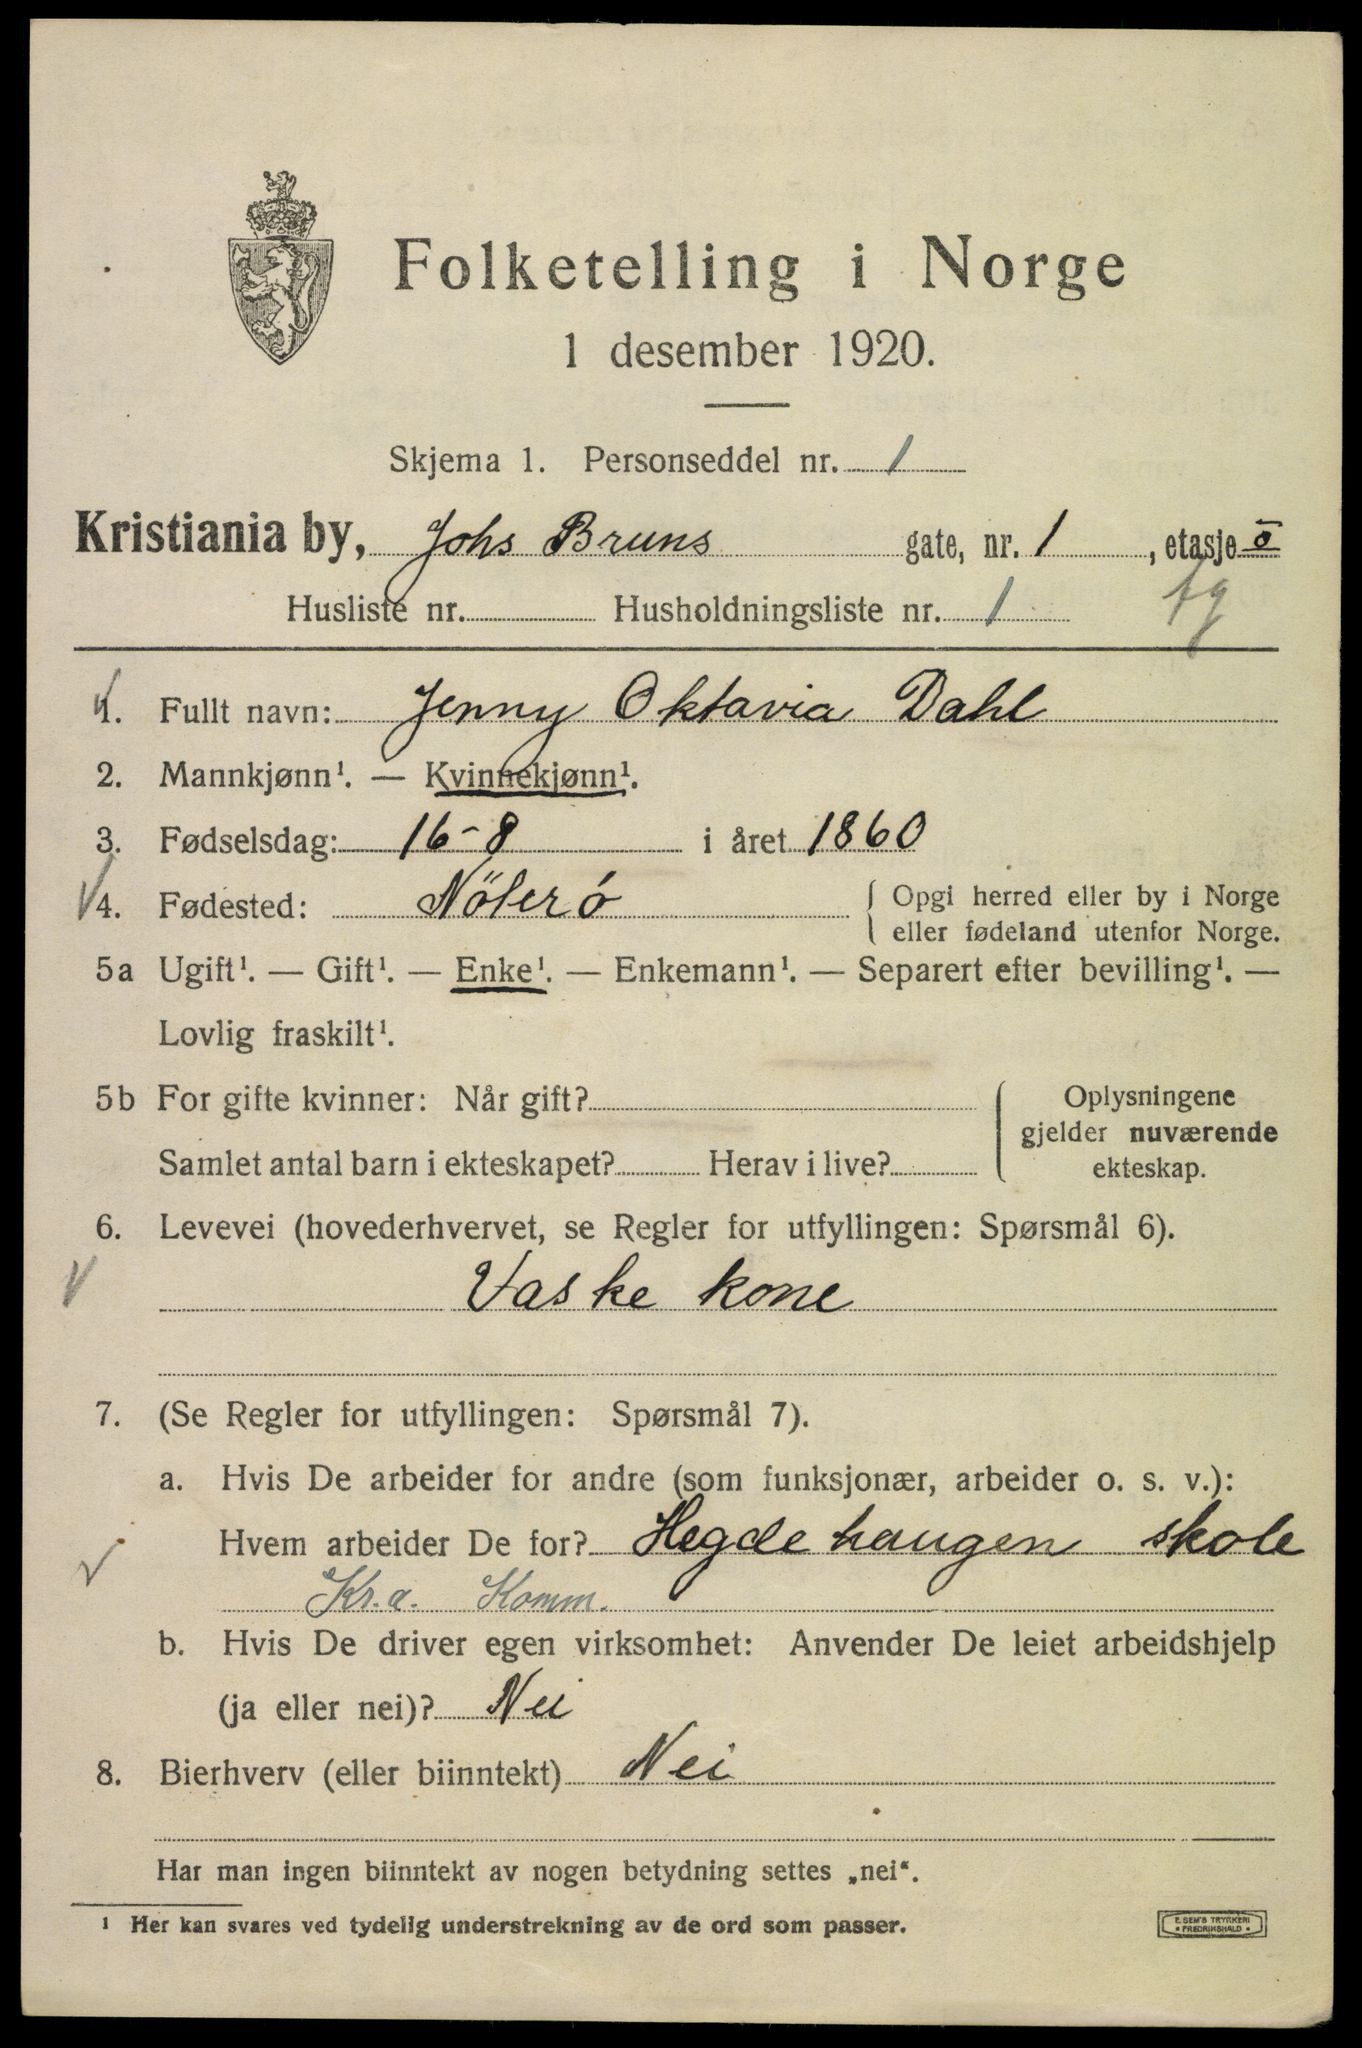 Folketelling i Norge
1 desember 1920.
Skjema 1. Personseddel nr. 1
Kristiania by, Johs Bruns gate, nr. 1, etasje
Husliste nr. Husholdningsliste nr. 1
1. Fullt navn: Jenny Oktavia Dahl
2. Mannkjønn¹. — Kvinnekjønn¹.
3. Fødselsdag: 16-8 i året 1860
4. Fødested: Nöterö { Opgi herred eller by i Norge
eller fødeland utenfor Norge.
5a Ugift¹. — Gift¹. — Enke¹. — Enkemann¹. — Separert efter bevilling¹. —
Lovlig fraskilt¹.
5b For gifte kvinner: Når gift?
Samlet antal barn i ekteskapet? Herav i live?
Oplysningene
gjelder nuværende
ekteskap.
6. Levevei (hovederhvervet, se Regler for utfyllingen: Spørsmål 6).
Vaske kone
7. (Se Regler for utfyllingen: Spørsmål 7).
a. Hvis De arbeider for andre (som funksjonær, arbeider o. s. v.):
Hvem arbeider De for? Hegdehaugen skole
Kr.a. Komm.
b. Hvis De driver egen virksomhet: Anvender De leiet arbeidshjelp
(ja eller nei)? Nei
8. Bierhverv (eller biinntekt) Nei
Har man ingen biinntekt av nogen betydning settes „nei“.
¹ Her kan svares ved tydelig understrekning av de ord som passer.
E. SEM'S TRYKKERI
• FREDRIKSHALD •